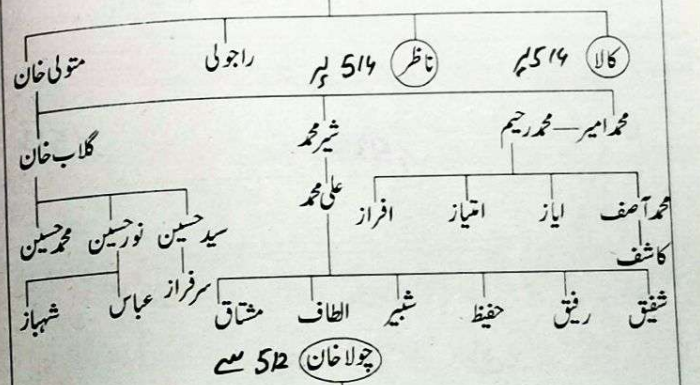 کالا 514 پر ناظر 514 پر راجولی متولی خان
محمد امیر — محمد رحیم شیر محمد گلاب خان
محمد آصف ایاز امتیاز افراز علی محمد سید حسین نور حسین محمد حسین
کاشف
شفیق رفیق حفیظ شبیر الطاف مشتاق سرفراز عباس شہباز
چولا خان 512 سے